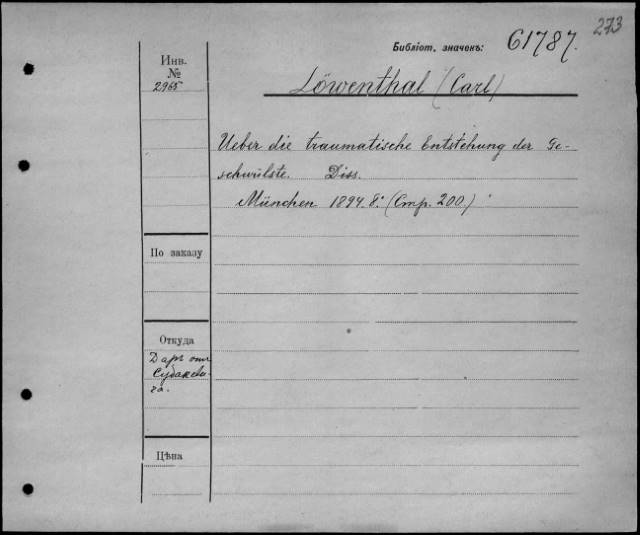 273
Библіот, значенъ: 61787.
Инв.
№
2965
Löwenthal (Carl)
Ueber die traumatische Entstehung der Ge-
schwülste. Diss.
München 1894. 8° (Стр. 200.)
По заказу
Откуда
Даръ отъ
Судакеви-
ча.
Цѣна